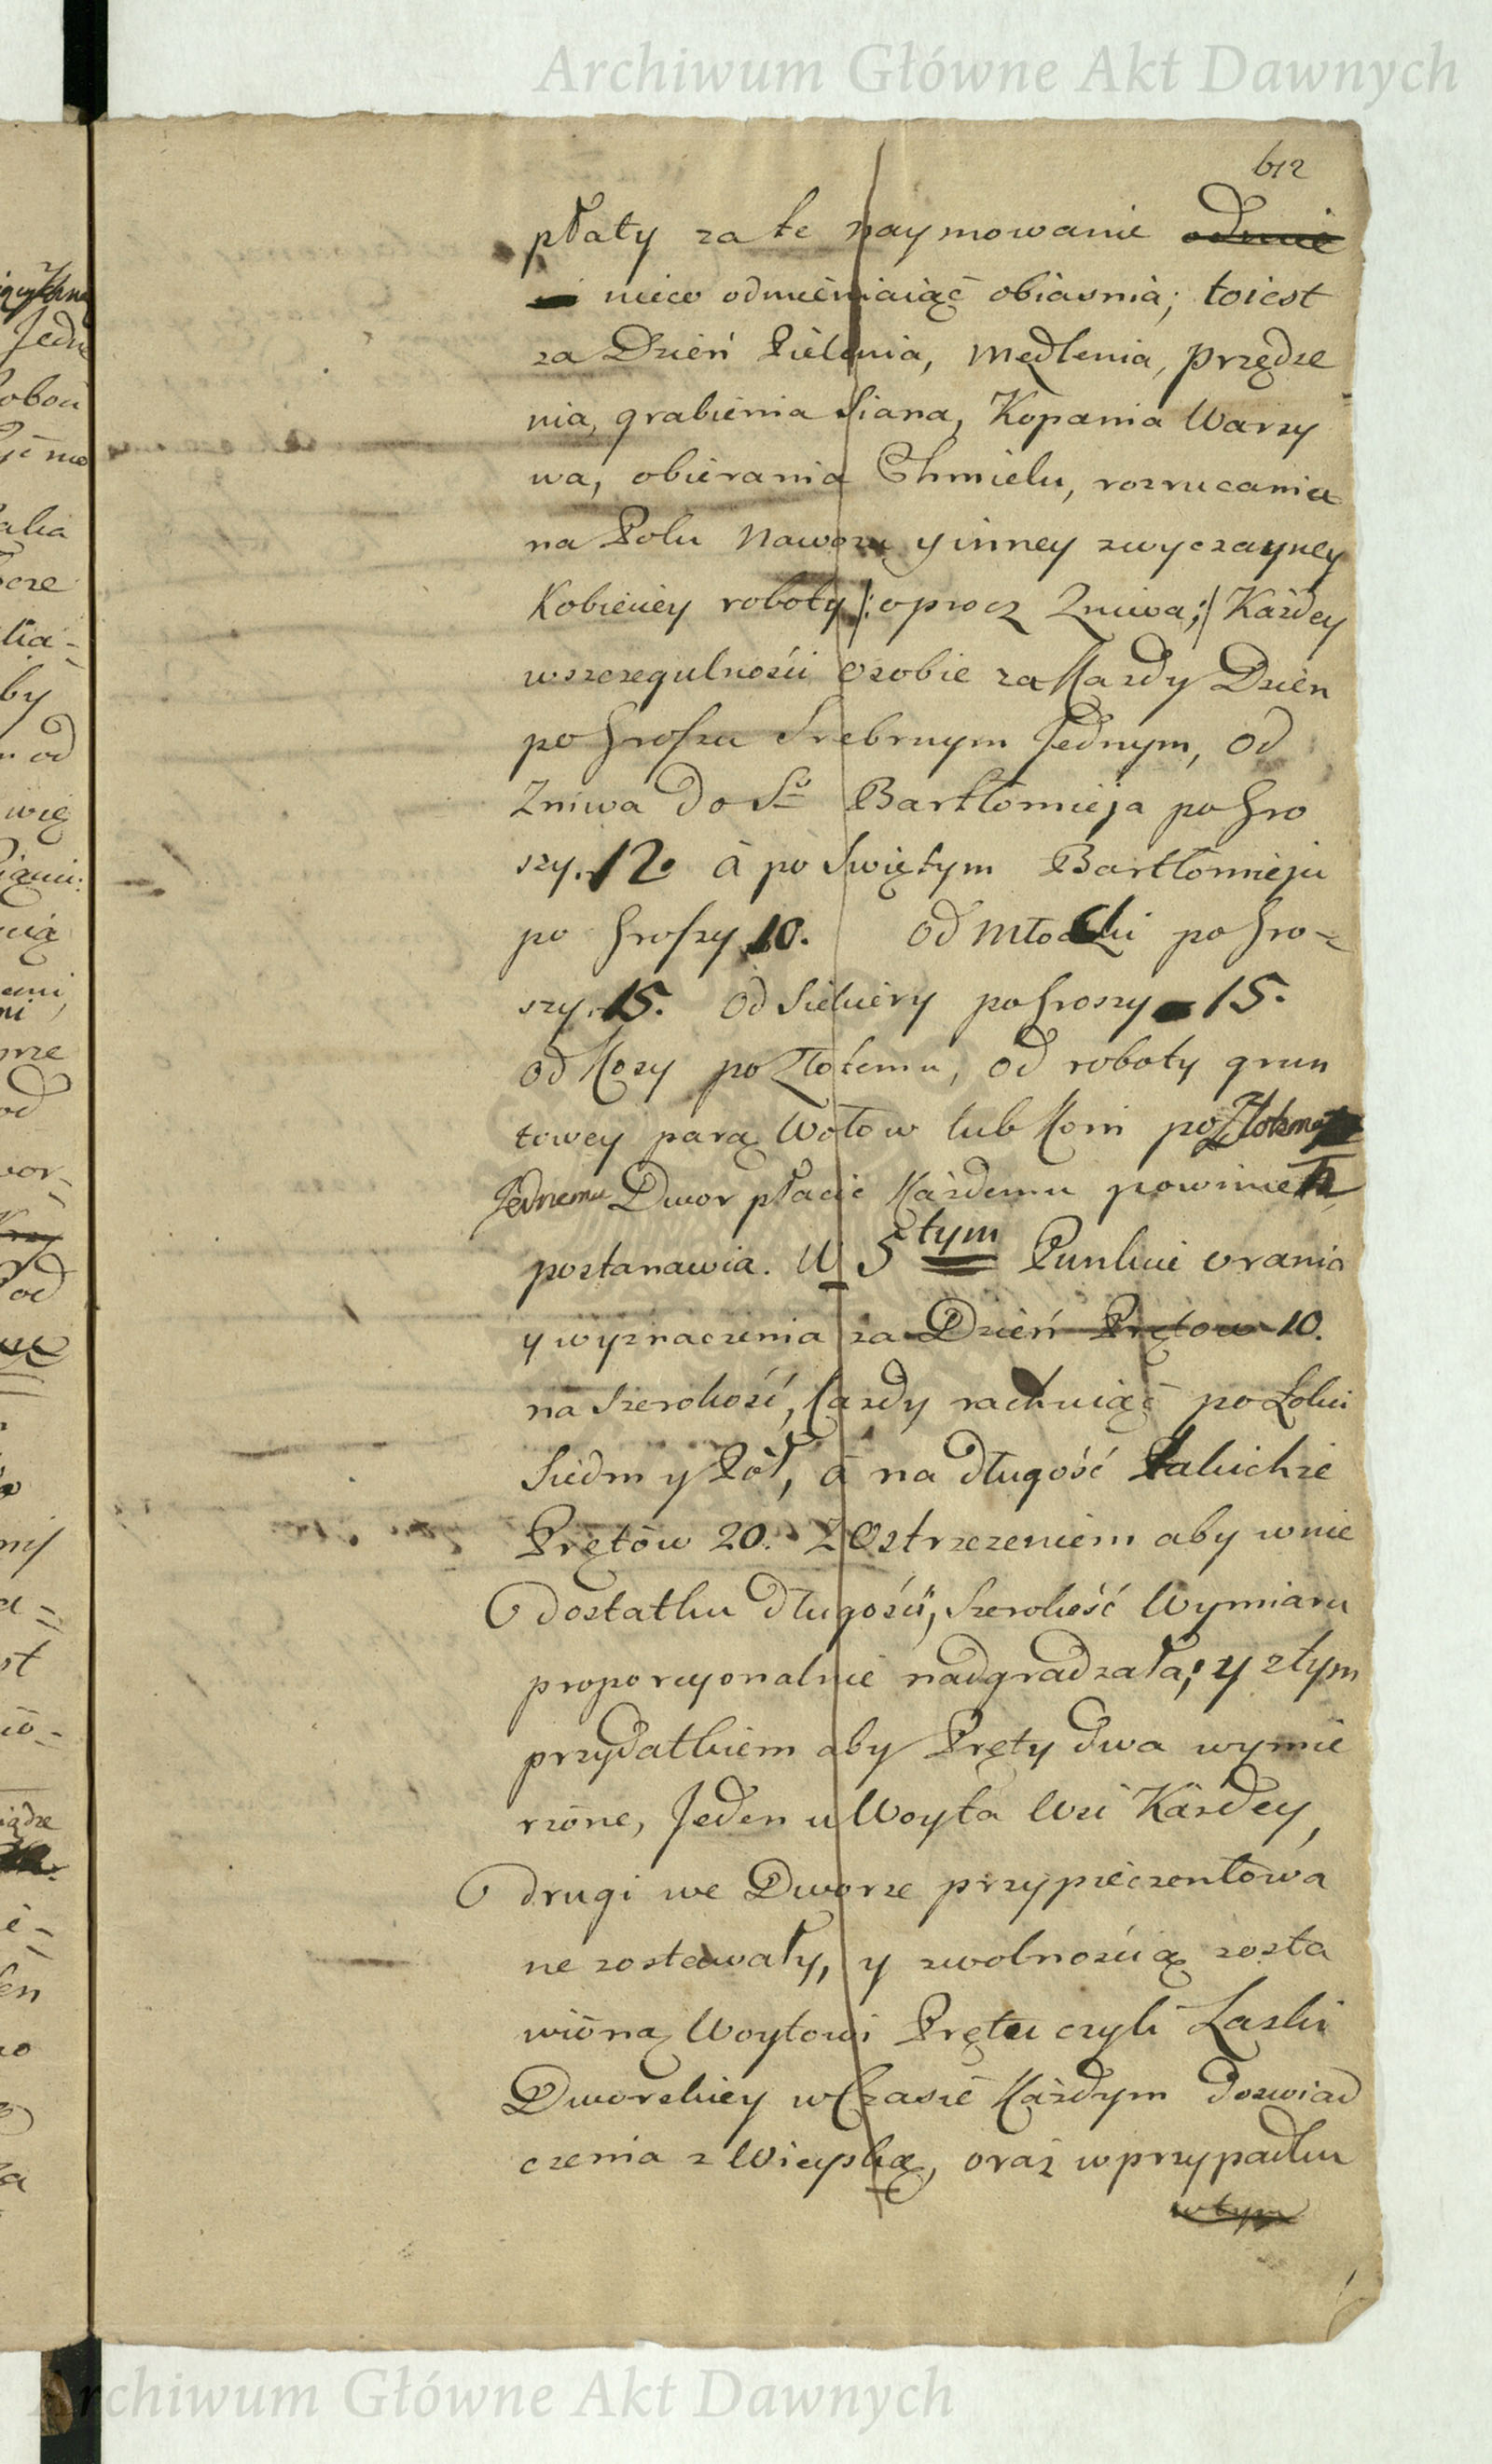 Archiwum Główne Akt Dawnych
612
płaty za te naymowanie odmie
nieco odmieniaiąc obiasnia; toiest
za Dzień Pielenia, Mędlenia, przędze
nia, grabienia Siana, Kopania Warzy
wa, obierania Chmielu, rozrucania
na Polu Nawozu y inney zwyczayney
Kobiecey roboty /: oprocz Zniwa; / Każdey
wszczegulności osobie za Kazdy Dzien
po Groszu Srebrnym Jednym, od
Zniwa do So Bartłomieja po Gro
szy. 12. á po Swiętym Bartłomieju
po Groszy 10. od Młocki po Gro=
szy. 15. od Siekiery po Groszy 15.
od Kosy po Złotemu, od roboty grun
towey parą Wołow lub Koni po Złotemu
Jednemu Dwor płacić Każdemu powinien
postanawia. W 5tym Punkcie orania
y wyznaczenia za Dzień Prętow 10.
na Szerokość, Kazdy rachuiąc po Łokci
Siedm y Pół, á na długość Takichże
Prętów 20. Z Ostrzezeniem aby wnie
dostatku długości, Szerokość Wymiaru
proporcyonalnie nadgradzała; y ztym
przydatkiem aby Pręty dwa wymie
rzone, Jeden u Woyta Wsi Każdey,
drugi we Dworze przypieczentowa
ne zostawały, y zwolnością zosta
wioną Woytowi Prętu czyli Laski
Dworskiey w Czasie Każdym doswiad
czenia z Wieyską, oraz w przypadku
wtym
Archiwum Główne Akt Dawnych